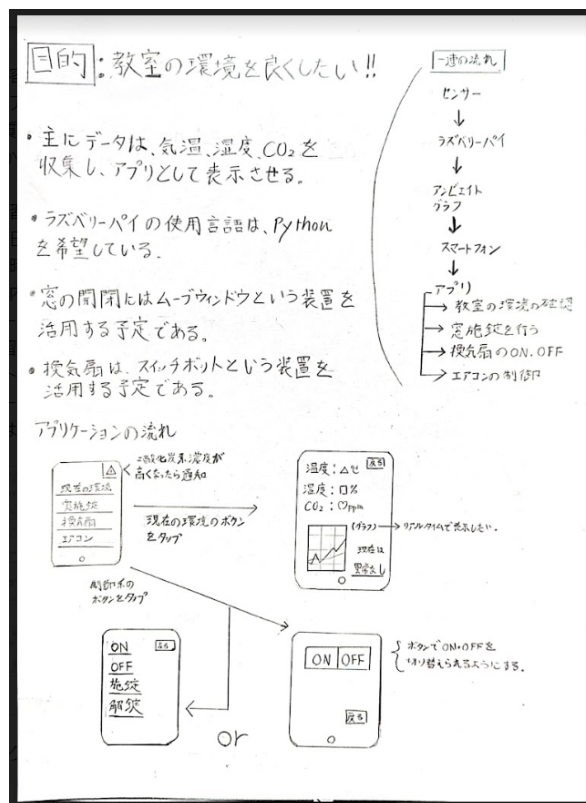 目的:教室の環境を良くしたい!!
・主にデータは、気温、湿度、CO₂を
収集し、アプリとして表示させる。
・ラズベリーパイの使用言語は、Python
を希望している。
・窓の開閉にはムーブウィンドウという装置を
活用する予定である。
・換気扇は、スイッチボットという装置を
活用する予定である。
一連の流れ
センサー
↓
ラズベリーパイ
↓
アンビエイト
グラフ
↓
スマートフォン
↓
アプリ
→教室の環境の確認
→窓施錠を行う
→換気扇のON.OFF
→エアコンの制御
アプリケーションの流れ
二酸化炭素濃度が
高くなったら通知
現在の環境
窓施錠
換気扇
エアコン
現在の環境のボタン
をタップ
戻る
温度:△℃
湿度:□%
CO₂:○ppm
(グラフ)→リアルタイムで表示したい。
現在は
異常なし
制御系の
ボタンをタップ
ON
戻る
OFF
施錠
解錠
or
ON OFF
戻る
ボタンでON・OFFを
切り替えられるようにする。